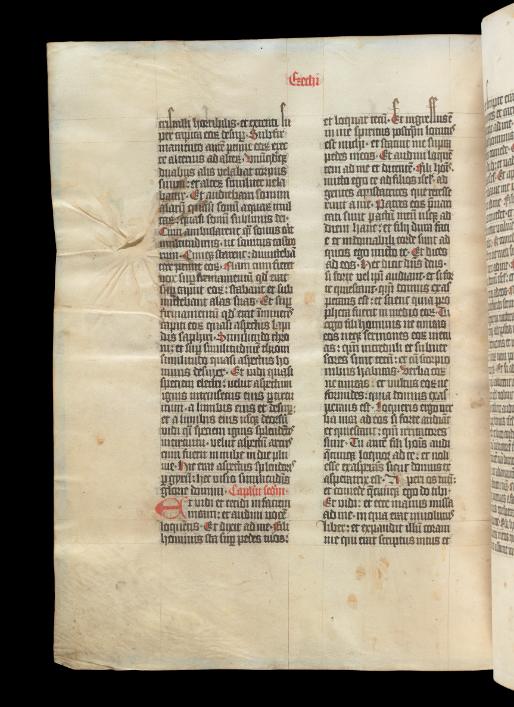 Ezechi
cristalli horribilis · et extenti su
per capita eoꝝ desup̱ · Sub fir
mamento aut̄ penne eoꝝ rec̄te
alterius ad alteꝝ · vnūq̄sq̄
duabus alis velabat corpus
suum · et alter similiter vela
batur · Et audiebam sonum
alarū quasi sonū aquarū mul
taꝝ · quasi sonū sublimis dei
Cum ambularent q̄si sonus erat
multitudinis · ut sonitus castro
rum · Cumq̄ starent · dimitteba
tur penne eoꝝ · Nam cum fieret
vox sup̱ firmamentū qd̄ erat
sup̱ caput eoꝝ · stabant et sub
mittebant alas suas · Et sup̱
firmamentū qd̄ erat īminens
capiti eoꝝ quasi aspectus lapi
dis saphiri · Similitudo thro
ni · et sup̱ similitudinē throni
similitudo quasi aspectus ho
minis desup̱ · Et vidi quasi
speciem electri · velut aspectum
ignis intrinsecus eius per circu
itum · a lumbis eius et desup̱
et a lumbis eius usq̄ deorsū
vidi q̄si speciem ignis splendētis
in circuitu · velut aspectū arcus
cum fuerit in nube in die plu
uie · Hic erat aspectus splendoris
p̱ gyrū · hec visio similitudinis
glorie domini · Capitl̄m secdm̄
Et vidi et cecidi in faciem
meam · et audiui vocē
loquentis · Et dixit ad me · Fili
hominis sta sup̱ pedes tuos ·
et loquar tecū · Et ingressus ē
in me spiritus postq̄m locutus
est michi · et statuit me supra
pedes meos · Et audiui loquē
tem ad me et dicentē · Fili hoīs
mitto ego te ad filios isrl̄ · ad
gentes apostatrices que recesse
runt a me · Patres eoꝝ p̱uari
cati sunt pactū meū usq̄ ad
diem hanc · et filij dura faci
e et indomabili corde sunt ad
quos ego mitto te · Et dices
ad eos · Hec dicit dn̄s deus ·
si forte vel ip̄i audiant · et si for
te quiescant · qm̄ domus exas
perans est · et scient quia pro
pheta fuerit in medio eoꝝ · Tu
ergo fili hominis ne timeas
eos neq̄ sermones eoꝝ metu
as · qm̄ increduli et subuer
sores sunt tecū · et cū scorpio
nibus habitas · Verba eoꝝ
ne timeas · et vultus eoꝝ ne
formides · quia domus exas
perans est · Loqueris ergo ver
ba mea ad eos si forte audiāt
et quiescant · qm̄ irritatores
sunt · Tu aut̄ fili hoīs audi
quecūq̄ loquor ad te · et noli
esse exasperans sicut domus ex
asperatrix est · Aperi os tuū
et comede quecūq̄ ego do tibi ·
Et vidi · et ecce manus missa
ad me · in qua erat inuolutus
liber · et expandit illū coram
me qui erat scriptus intus et